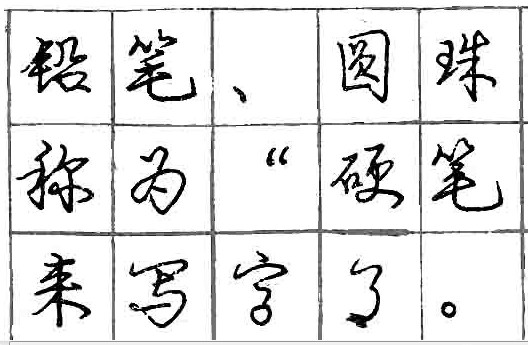 铅笔、圆珠
称为“硬笔
来写字了。